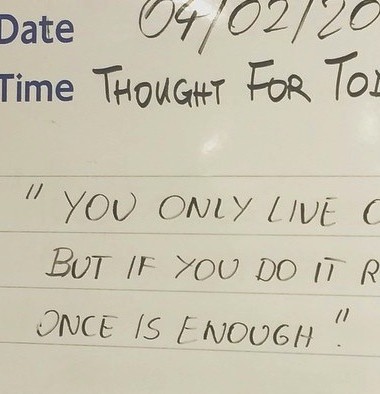 Date 04/02/20
Time THOUGHT FOR
" YOU ONLY LIVE
BUT IF YOU DO IT
ONCE IS ENOUGH".